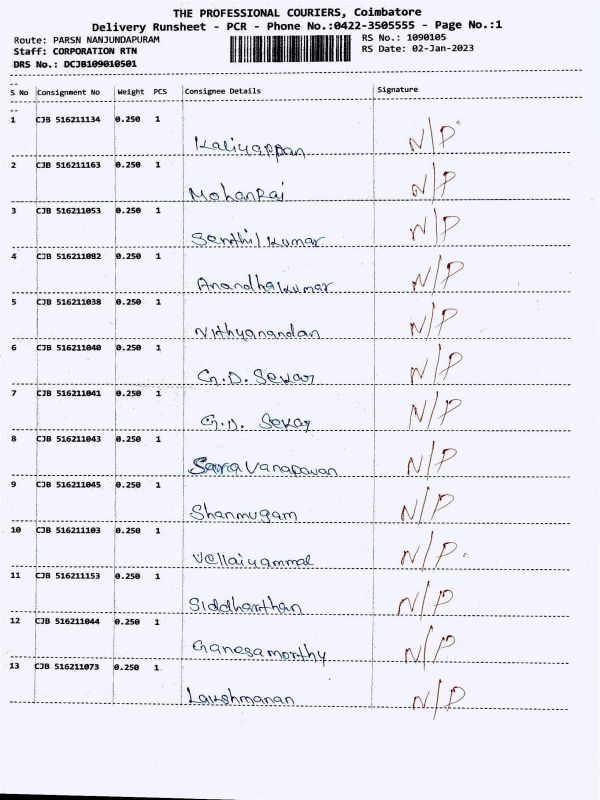 THE PROFESSIONAL COURIERS, Coimbatore
Delivery Runsheet - PCR - Phone No.:0422-3505555 - Page No.:1
Route: PARSN NANJUNDAPURAM RS No.: 1090105
Staff: CORPORATION RTN RS Date: 02-Jan-2023
DRS No.: DCJB109010501
S No Consignment No Weight PCS Consignee Details Signature
1 CJB 516211134 0.250 1
Kaliyappan N/P
2 CJB 516211163 0.250 1
MohanRaj N/P
3 CJB 516211053 0.250 1
Senthil Kumar N/P
4 CJB 516211082 0.250 1
Anandhakumar N/P
5 CJB 516211038 0.250 1
Nithyanandan N/P
6 CJB 516211040 0.250 1
G.D. Sekar N/P
7 CJB 516211041 0.250 1
G.D. Sekar N/P
8 CJB 516211043 0.250 1
Saravanapavan N/P
9 CJB 516211045 0.250 1
Shanmugam N/P
10 CJB 516211103 0.250 1
Vellaiyammal N/P
11 CJB 516211153 0.250 1
Siddharthan N/P
12 CJB 516211044 0.250 1
Ganesamorthy N/P
13 CJB 516211073 0.250 1
Lakshmanan N/P